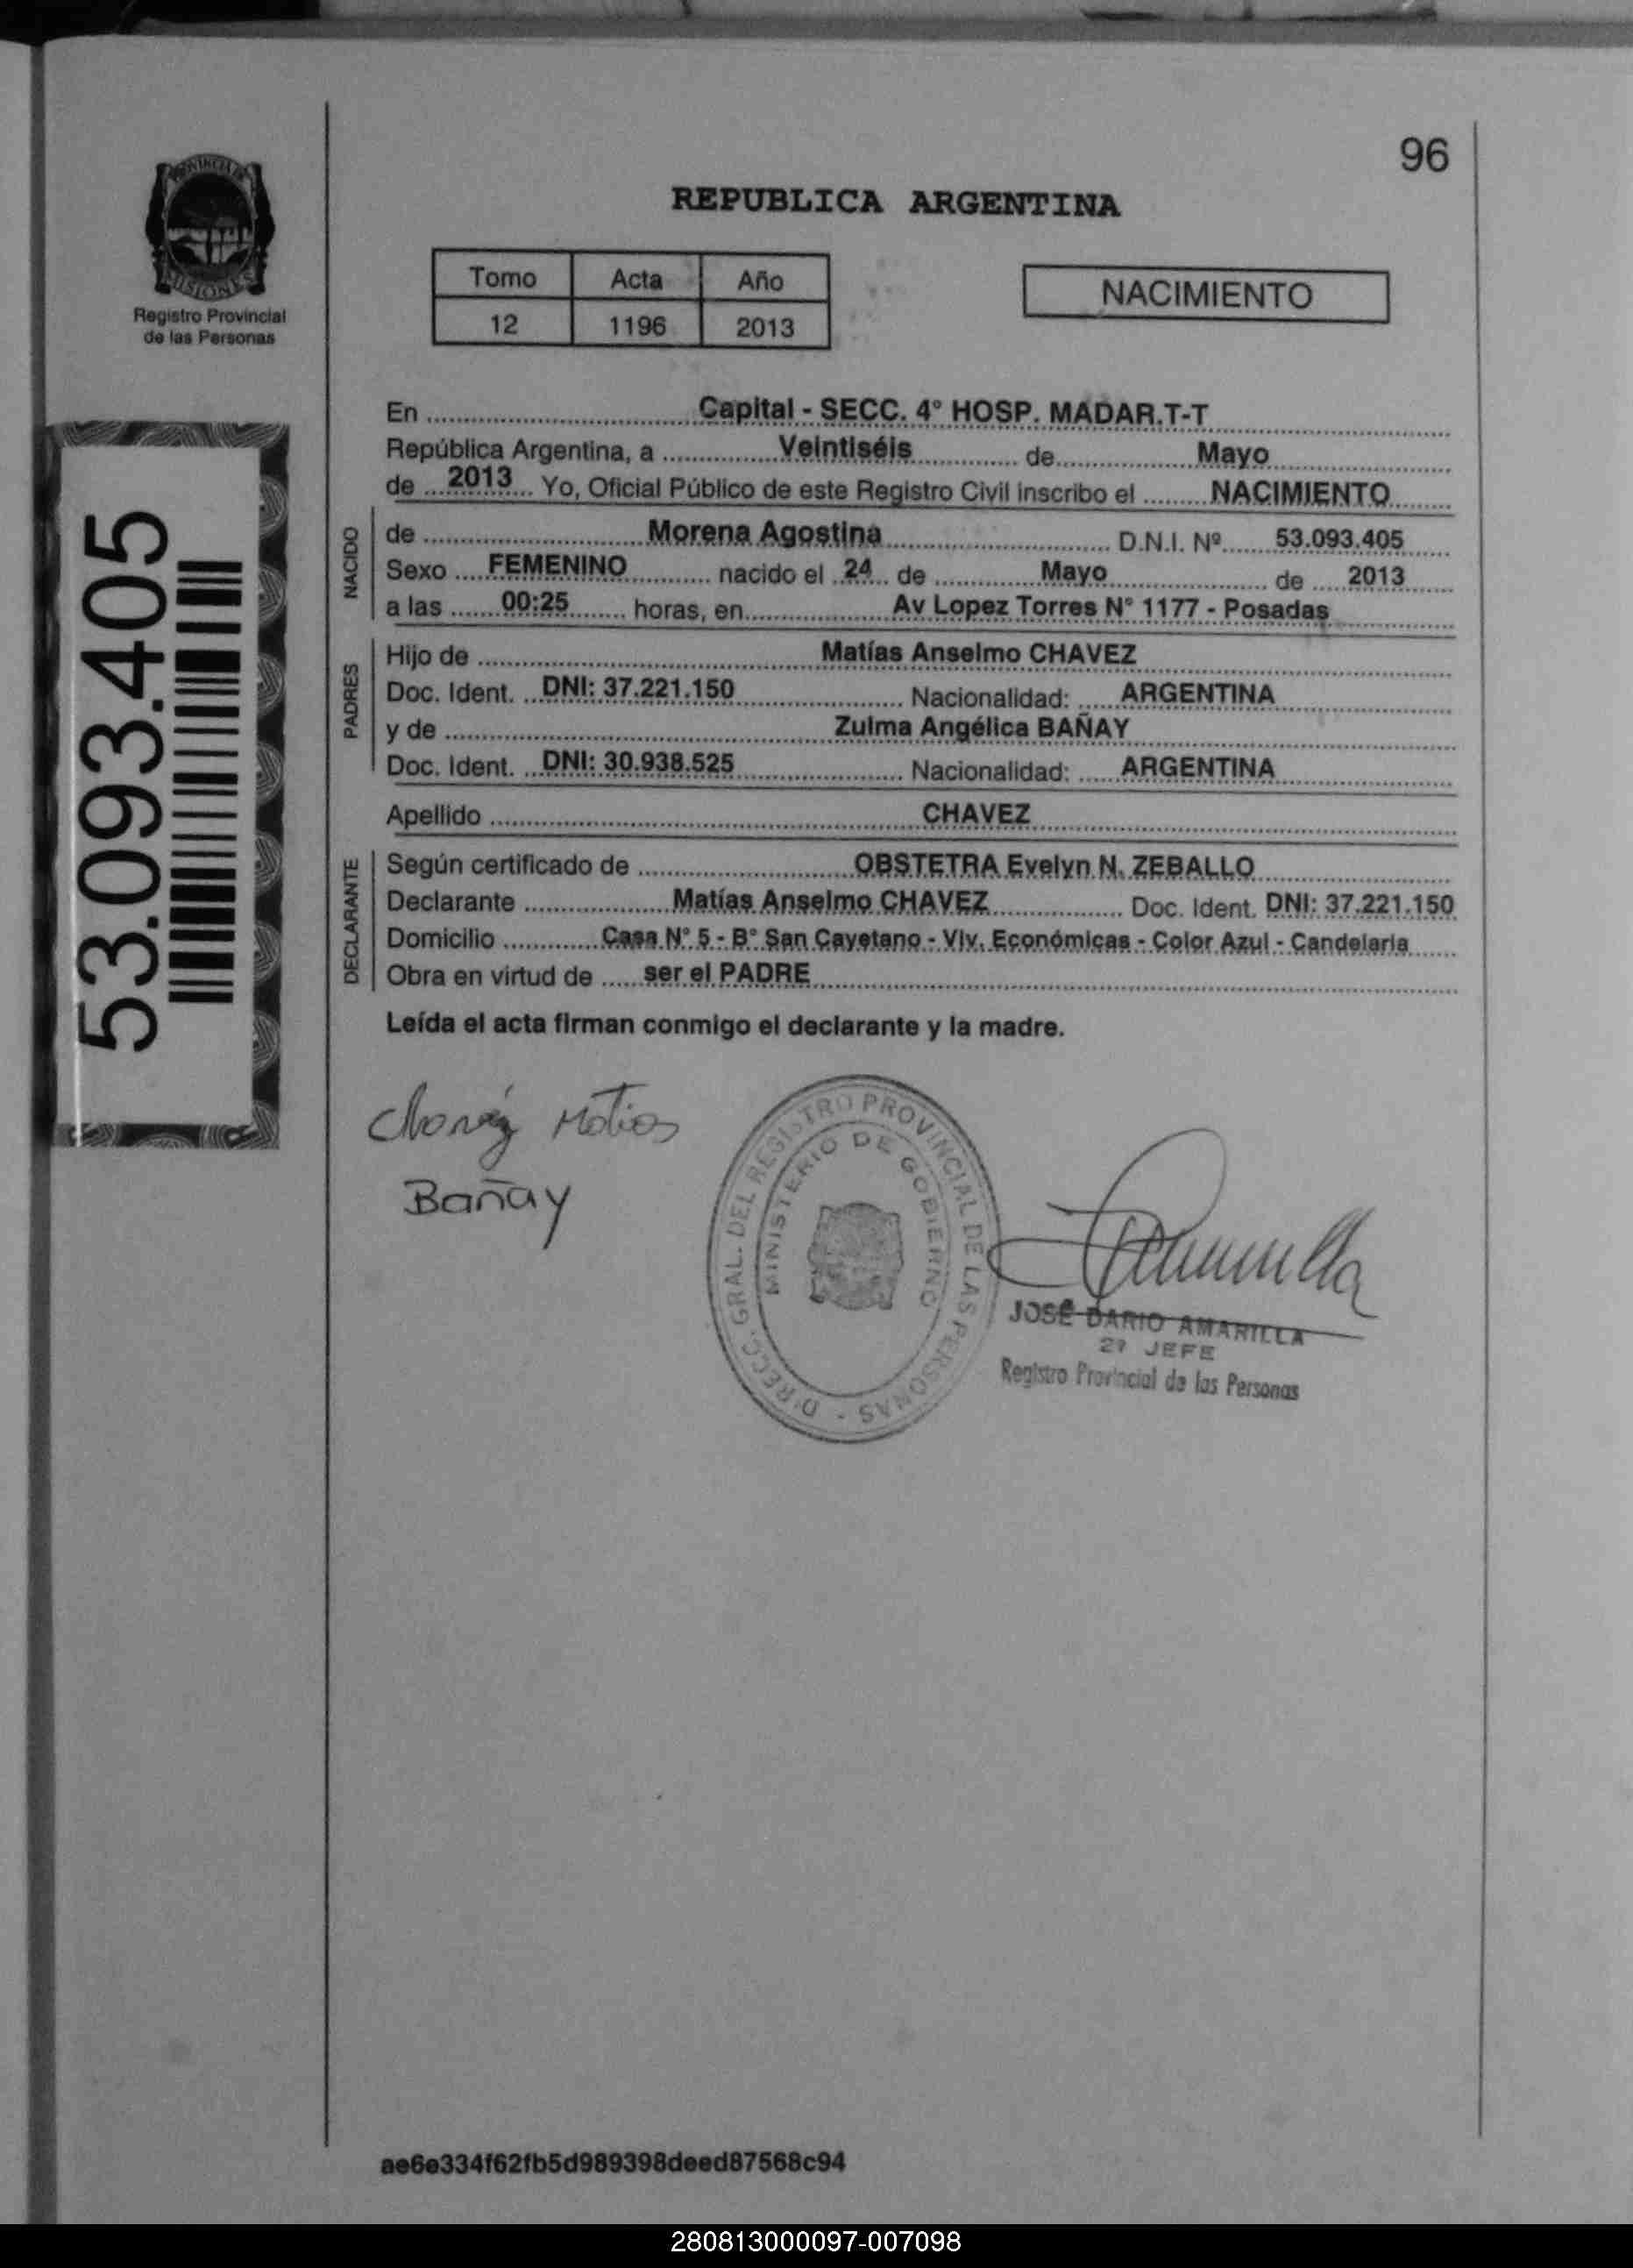 96
PROVINCIA DE
MISIONES
Registro Provincial
de las Personas
REPUBLICA ARGENTINA
Tomo Acta Año
12 1196 2013
NACIMIENTO
53.093.405
En Capital - SECC. 4° HOSP. MADAR.T-T
República Argentina, a Veintiséis de Mayo
de 2013 Yo, Oficial Público de este Registro Civil inscribo el NACIMIENTO
NACIDO
de Morena Agostina D.N.I. Nº 53.093.405
Sexo FEMENINO nacido el 24 de Mayo de 2013
a las 00:25 horas, en Av Lopez Torres N° 1177 - Posadas
PADRES
Hijo de Matías Anselmo CHAVEZ
Doc. Ident. DNI: 37.221.150 Nacionalidad: ARGENTINA
y de Zulma Angélica BAÑAY
Doc. Ident. DNI: 30.938.525 Nacionalidad: ARGENTINA
Apellido CHAVEZ
DECLARANTE
Según certificado de OBSTETRA Evelyn N. ZEBALLO
Declarante Matías Anselmo CHAVEZ Doc. Ident. DNI: 37.221.150
Domicilio Casa N° 5 - B° San Cayetano - Viv. Económicas - Color Azul - Candelaria
Obra en virtud de ser el PADRE
Leída el acta firman conmigo el declarante y la madre.
Chavéz Matias
Bañay
DIRECC. GRAL. DEL REGISTRO PROVINCIAL DE LAS PERSONAS -
MINISTERIO DE GOBIERNO
JOSÉ DARIO AMARILLA
2º JEFE
Registro Provincial de las Personas
ae6e334f62fb5d989398deed87568c94
280813000097-007098